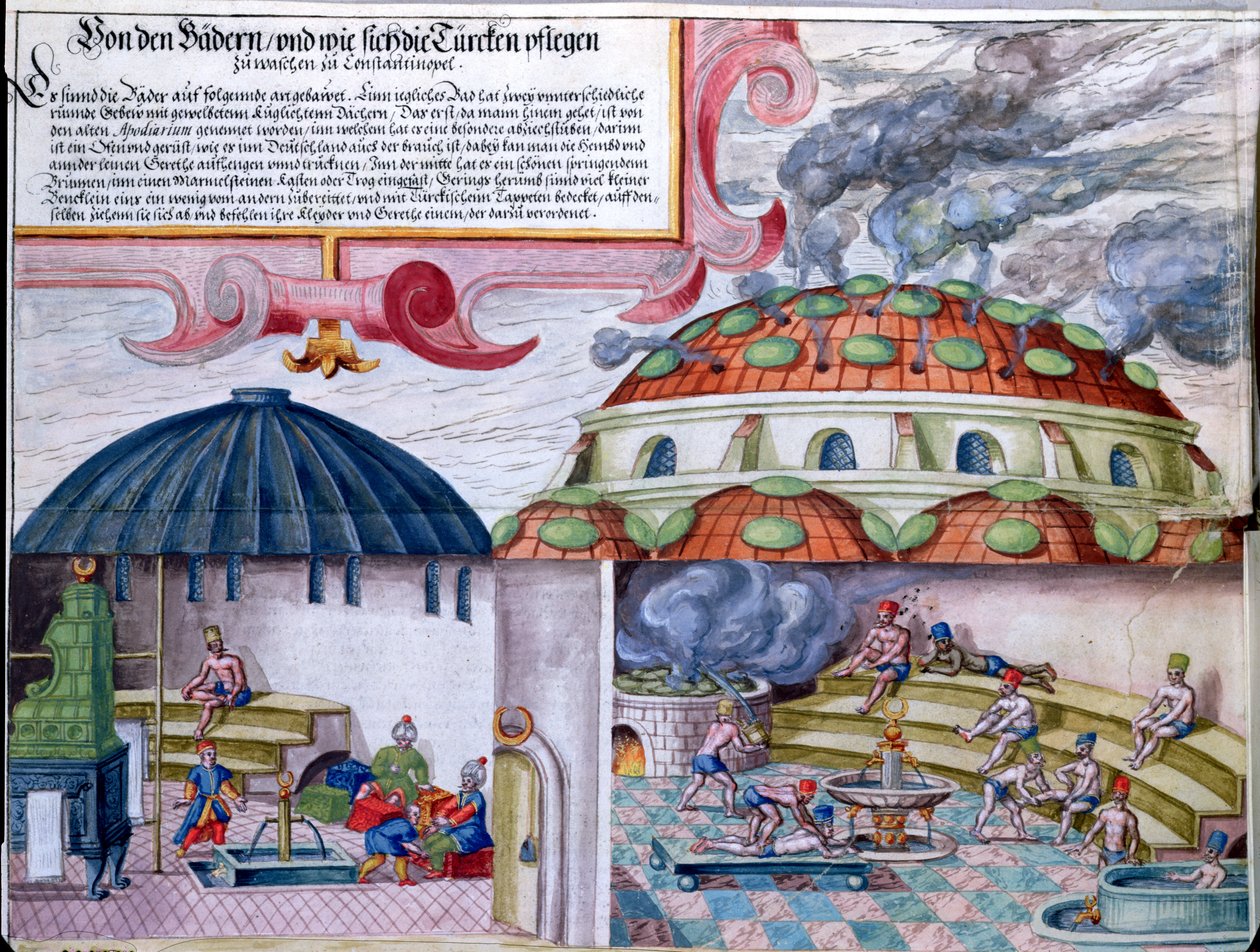 Von den Bädern/ vnd wie sich die Türcken pflegen
zu waschen zu Constantinopel.
Es sinnd die Bäder auf folgennde art gebawet. Einn iegliches Bad hat zwey vnnterschiedliche
ruunde Gebew mit gewelbetenn Kuglichtenn Dächern/ Das erst/ da mann hinein gehet/ ist von
den alten Apodiarium genennet worden/ inn welchem hat es eine besondere abziechstuben/ darinn
ist ein Ofen vnd gerüst/ wie es inn Deutschland auch der brauch ist/ dabey kan man die Hembd vnd
annder leinen Gerethe aufhengen vnnd trücknen/ Inn der mitte hat es ein schönen springendenn
Brunnen/ inn einen Marmelsteinen Kasten oder Trog eingefast/ Gerings herumb sinnd viel kleiner
Bencklein eins ein wenig vom andern zubereittet/ vnd mit Türckischenn Tappeten bedecket/ auff den=
selben ziehenn sie sich ab/ vnd befehlen ihre Kleyder vnd Gerethe einem/ der darzu verordenet.